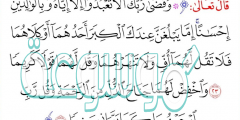 قَالَ تَعَالَىٰ: وَقَضَىٰ رَبُّكَ أَلَّا تَعْبُدُوٓا۟ إِلَّآ إِيَّاهُ وَبِٱلْوَٰلِدَيْنِ
إِحْسَٰنًا ۚ إِمَّا يَبْلُغَنَّ عِندَكَ ٱلْكِبَرَ أَحَدُهُمَآ أَوْ كِلَاهُمَا
فَلَا تَقُل لَّهُمَآ أُفٍّ وَلَا تَنْهَرْهُمَا وَقُل لَّهُمَا قَوْلًا كَرِيمًا
٢٣ وَٱخْفِضْ لَهُمَا جَنَاحَ ٱلذُّلِّ مِنَ ٱلرَّحْمَةِ